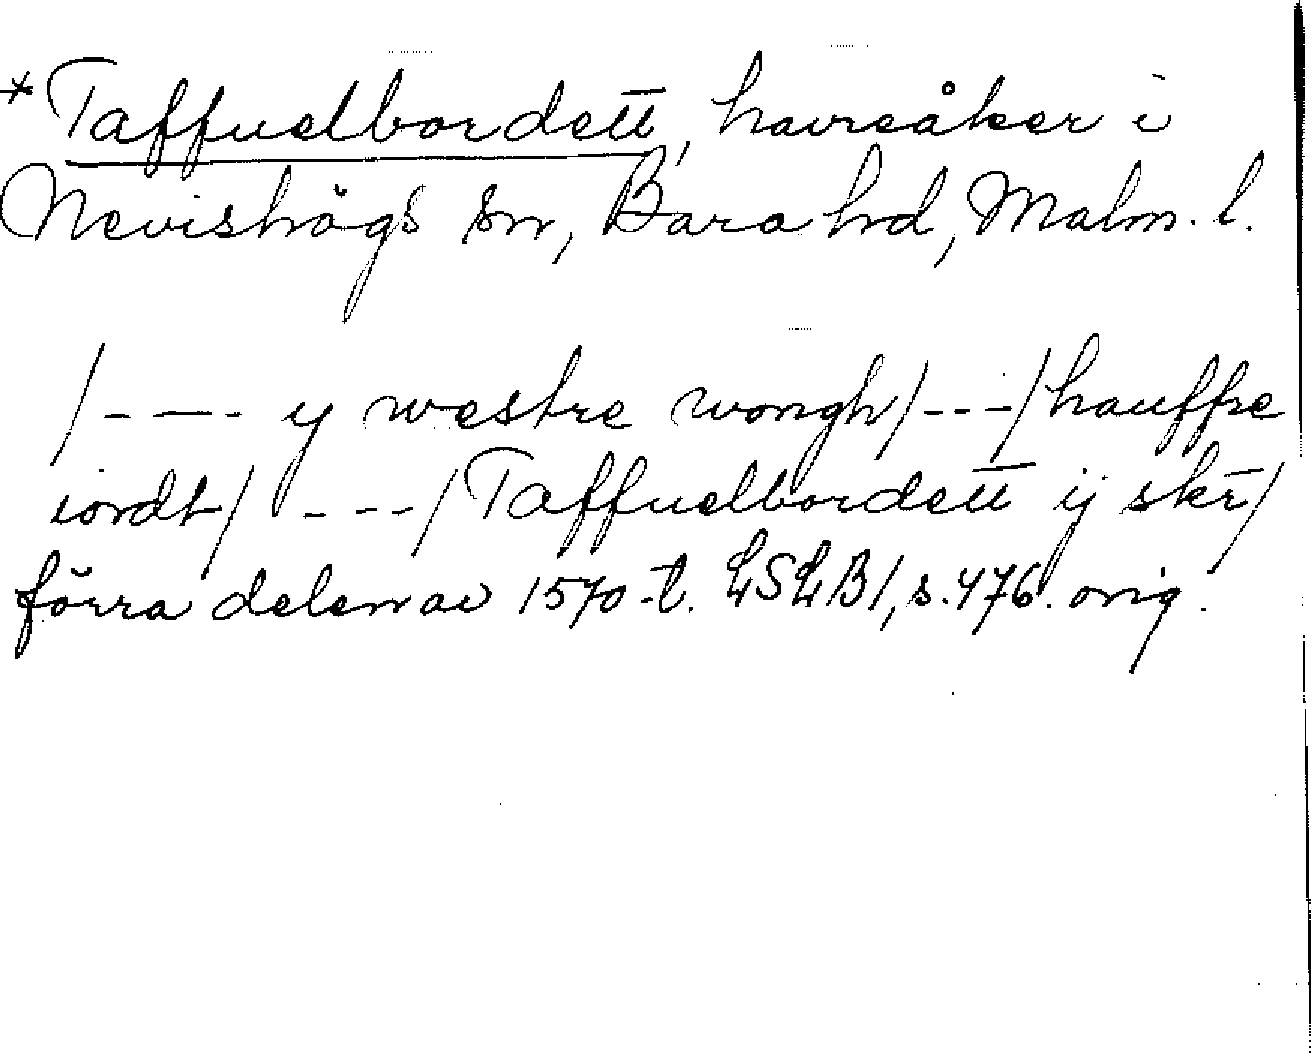 *Taffuelbordett, havreåker i
Nevishögs sn, Bara hd, Malm. l.
/- - - y westre wongh/- - -/hauffre
iordt/ - - -/Taffuelbordett ij skr/
förra delen av 1570-t. LSLB1, s.476. orig.